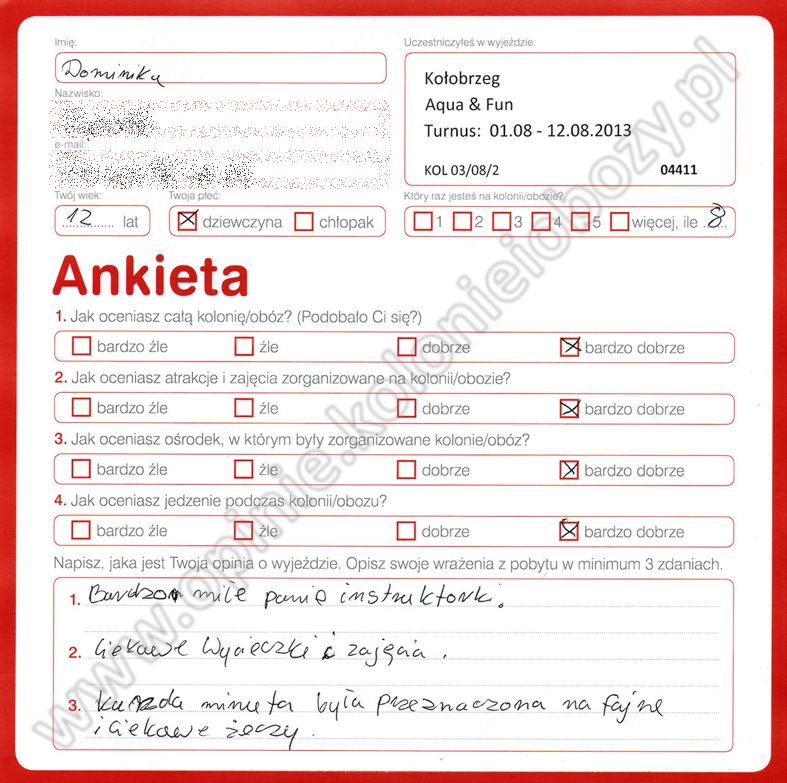 Imię:
Dominika
Nazwisko:
e-mail:
Uczestniczyłeś w wyjeździe:
Kołobrzeg
Aqua & Fun
Turnus: 01.08 - 12.08.2013
KOL 03/08/2 04411
Twój wiek: Twoja płeć: Który raz jesteś na kolonii/obozie?
12 lat dziewczyna chłopak 1 2 3 4 5 więcej, ile 8
Ankieta
1. Jak oceniasz całą kolonię/obóz? (Podobało Ci się?)
bardzo źle źle dobrze bardzo dobrze
2. Jak oceniasz atrakcje i zajęcia zorganizowane na kolonii/obozie?
bardzo źle źle dobrze bardzo dobrze
3. Jak oceniasz ośrodek, w którym były zorganizowane kolonie/obóz?
bardzo źle źle dobrze bardzo dobrze
4. Jak oceniasz jedzenie podczas kolonii/obozu?
bardzo źle źle dobrze bardzo dobrze
Napisz, jaka jest Twoja opinia o wyjeździe. Opisz swoje wrażenia z pobytu w minimum 3 zdaniach.
1. Bardzo miłe panie instruktorki.
2. Ciekawe Wycieczki i zajęcia.
3. każda minuta była przeznaczona na fajne
i ciekawe żeczy.
www.opinie.kolonieiobozy.pl